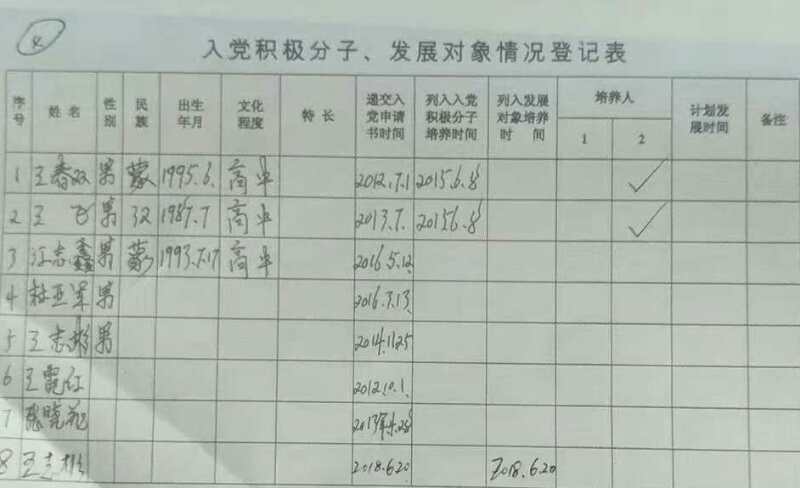 入党积极分子、发展对象情况登记表
序号 姓名 性别 民族 出生年月 文化程度 特长 递交入党申请书时间 列入入党积极分子培养时间 列入发展对象培养时间 培养人 1 2 计划发展时间 备注
1 王春双 男 蒙 1995.6. 高中 2012.7.1 2015.6.8 ✓
2 王飞 男 1987.7 高中 2013.7. 2015.6.8 ✓
3 江志鑫 男 蒙 1993.7.17 高中 2016.5.12
4 杜亚军 男 2016.7.13
5 王志彬 男 2014.11.25
6 王 红 2012.10.1.
7 张晓
8 王志 2018.6.20 2018.6.20